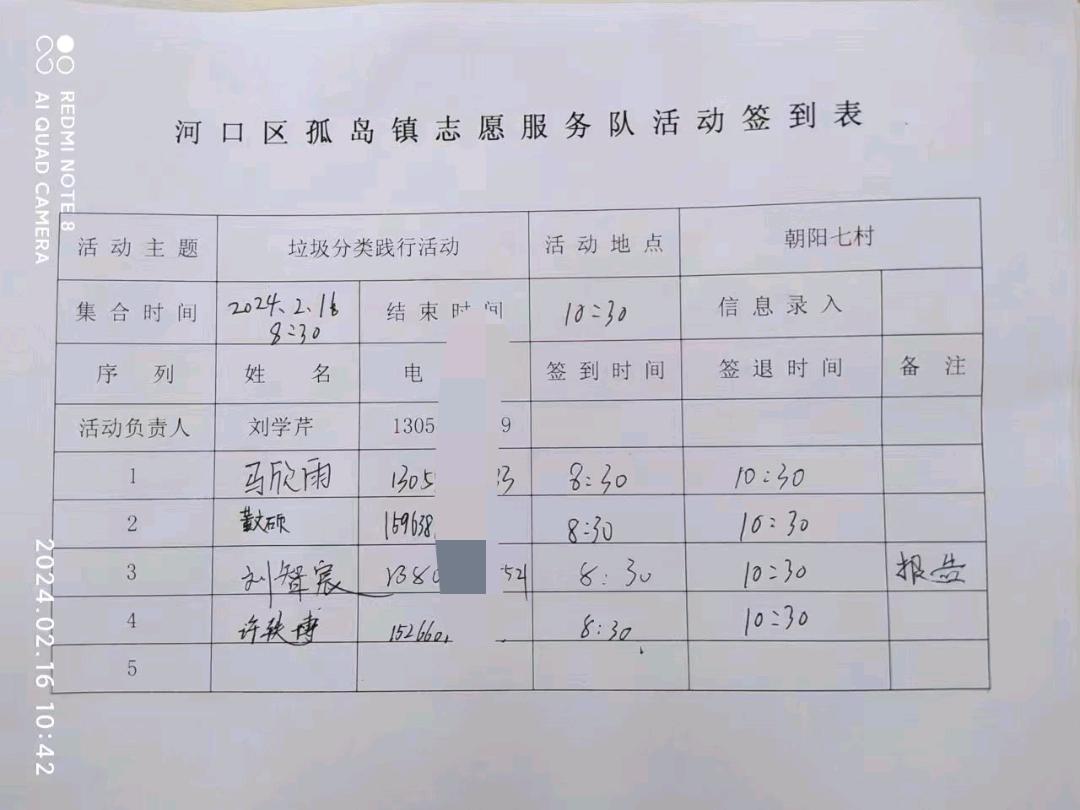 河口区孤岛镇志愿服务队活动签到表
活动主题 垃圾分类践行活动 活动地点 朝阳七村
集合时间 2024.2.16 8:30 结束时间 10:30 信息录入
序列 姓名 电 签到时间 签退时间 备注
活动负责人 刘学芹 1305 9
1 马欣雨 1305 33 8:30 10:30
2 硕 159638 8:30 10:30
3 刘智宸 1380 52 8:30 10:30 报告
4 许轶博 152660 8:30 10:30
5
REDMI NOTE 8
AI QUAD CAMERA
2024.02.16 10:42